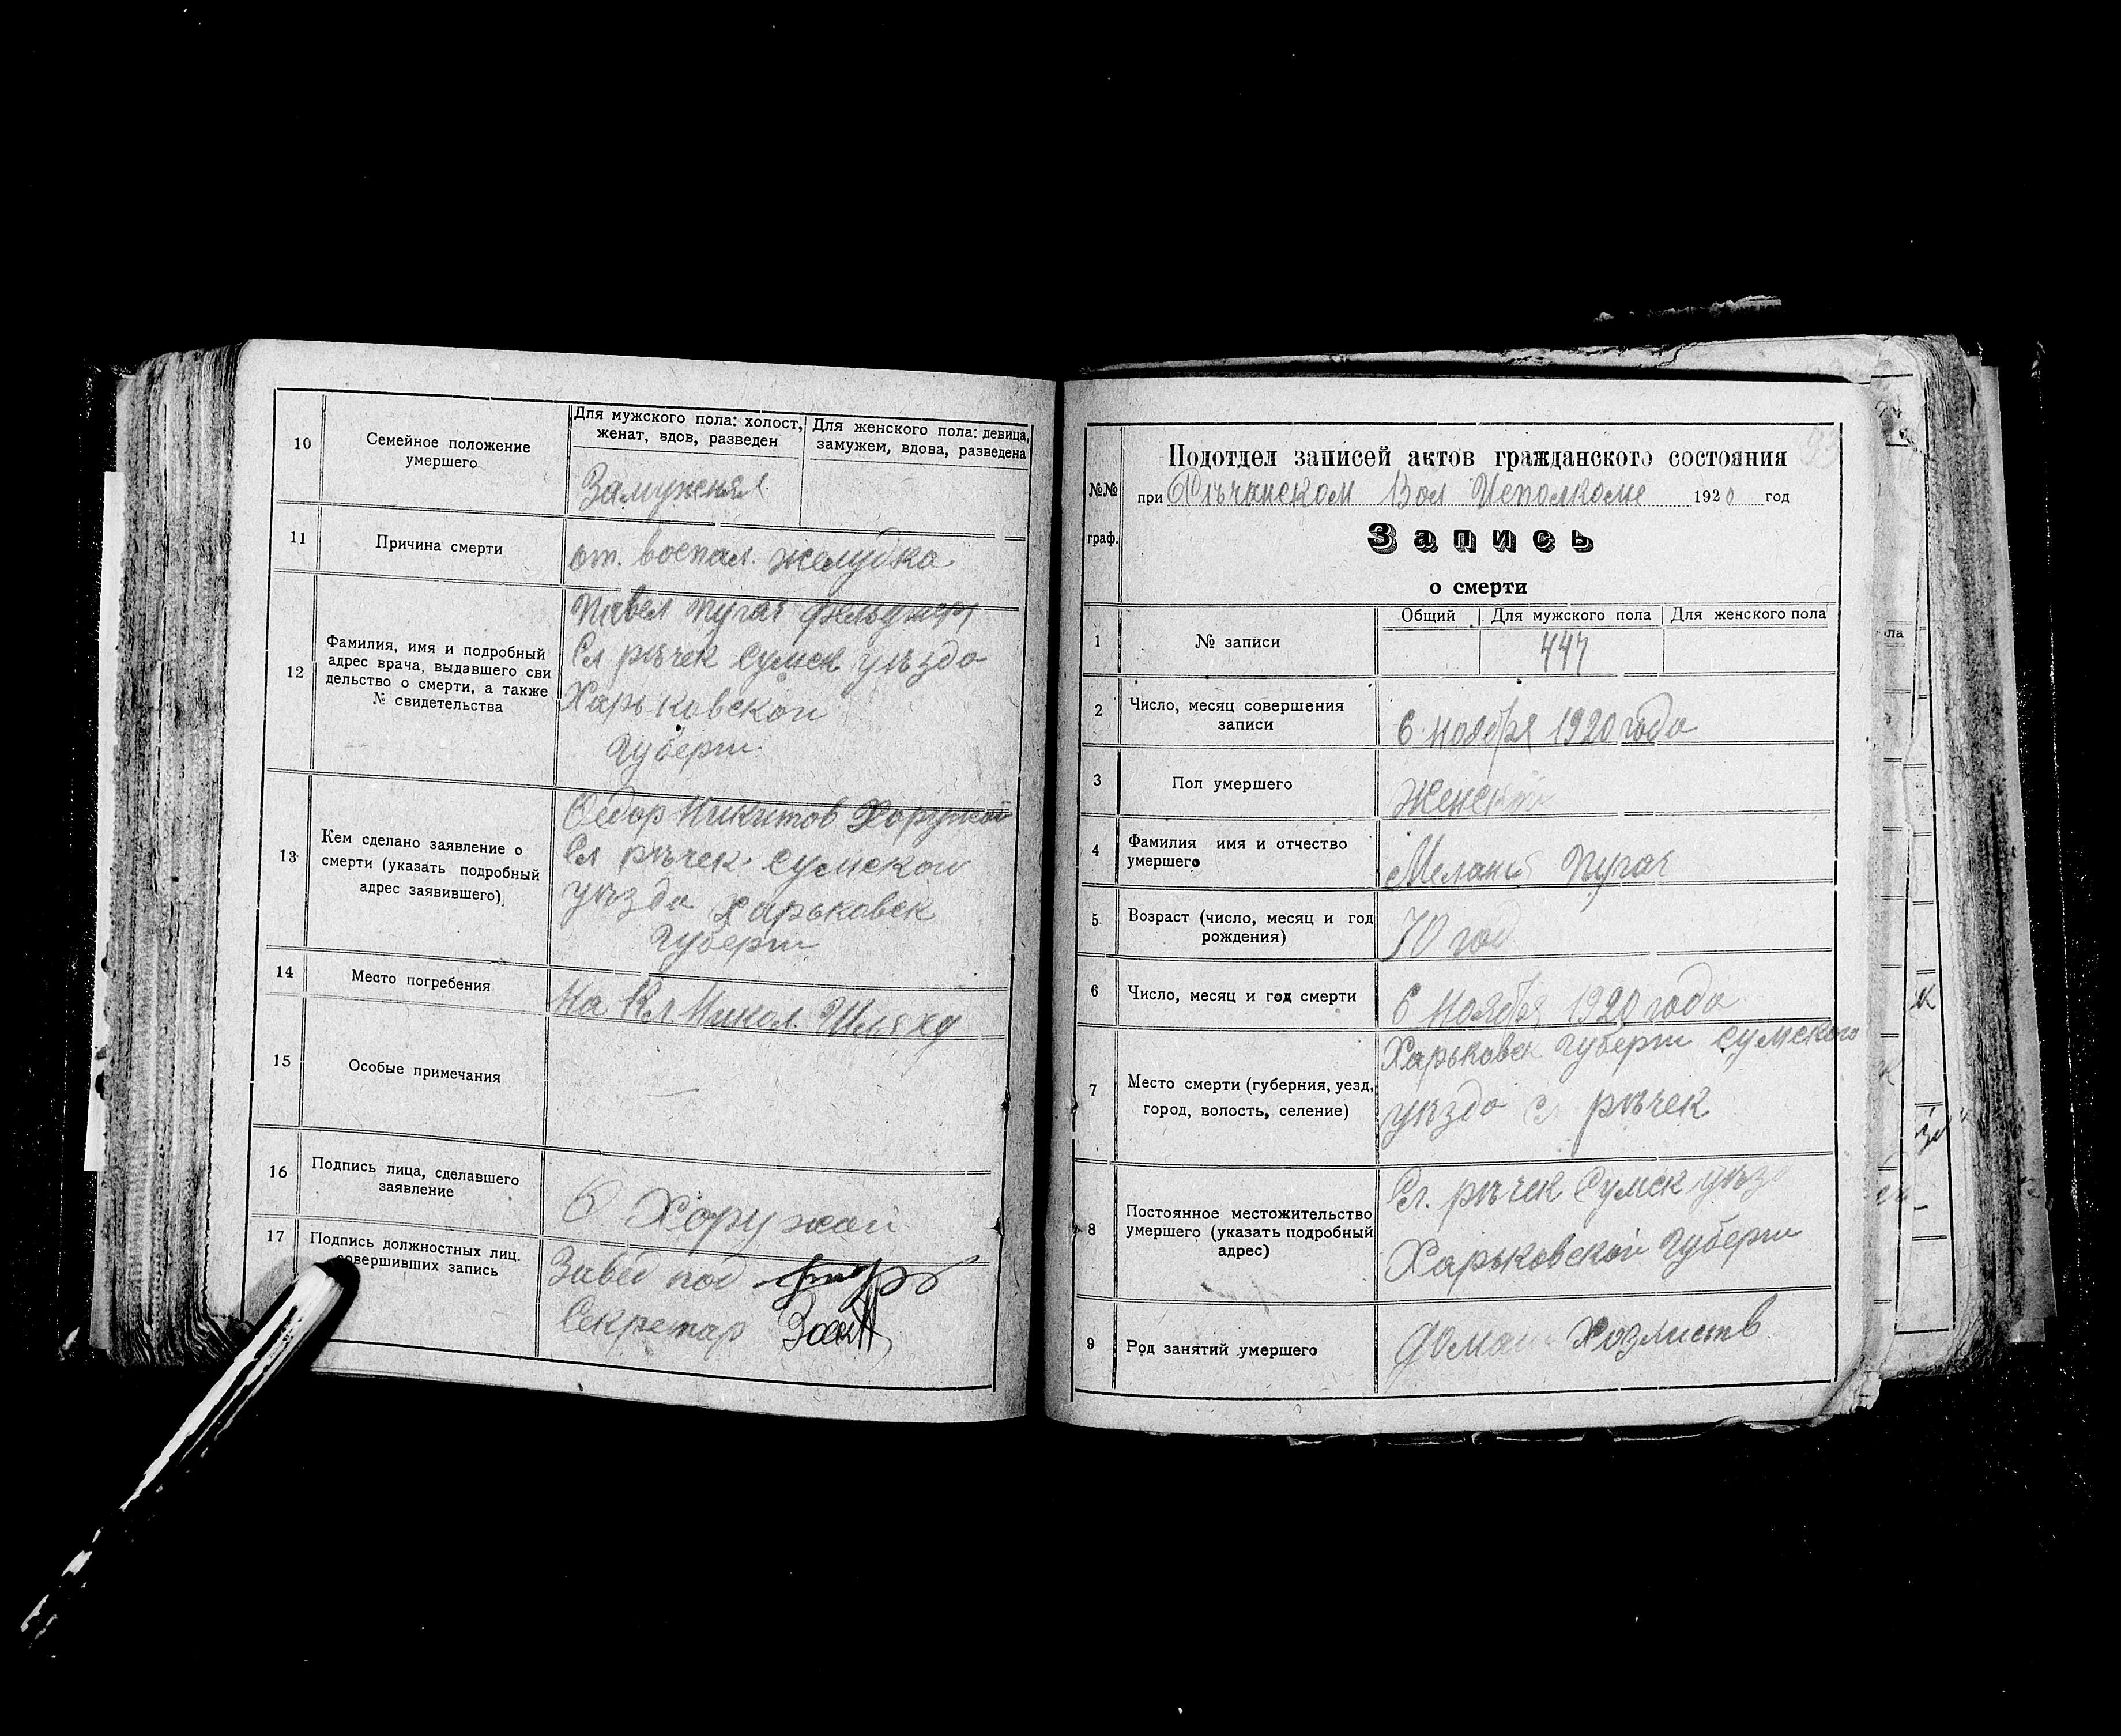 10
Семейное положение
умершего
Для мужского пола: холост,
женат, вдов, разведен
Для женского пола: девица,
замужем, вдова, разведена
Замужняя
11
Причина смерти
от. воспал. желудка
12
Фамилия, имя и подробный
адрес врача, выдавшего сви
дельство о смерти, а также
№ свидетельства
Павел Пугач фельдшер
Сл рѣчек Сумск уѣзда
Харьковской
Губерн
13
Кем сделано заявление о
смерти (указать подробный
адрес заявившего)
Федор Никитов Хоружей
Сл рѣчек Сумской
уѣзда Харьковск
Губерн
14
Место погребения
На Кл Никол. Шляху
15
Особые примечания
—
16
Подпись лица, сделавшего
заявление
Ф Хоружей
17
Подпись должностных лиц.
совершивших запись
Завед под
Секретар
№№
граф.
Подотдел записей актов гражданского состояния
при Рѣчанском Вол Исполкоме 1920 год
Запись
о смерти
1
№ записи
Общий
Для мужского пола
Для женского пола
447
2
Число, месяц совершения
записи
6 ноября 1920 года
3
Пол умершего
Женский
4
Фамилия имя и отчество
умершего
Мелания Пугач
5
Возраст (число, месяц и год
рождения)
70 год
6
Число, месяц и год смерти
6 Ноября 1920 года
7
Место смерти (губерния, уезд,
город, волость, селение)
Харьковск Губерн Сумского
уѣзда Сл рѣчек
8
Постоянное местожительство
умершего (указать подробный
адрес)
Сл. рѣчек Сумск уѣзд
Харьковской Губерн
9
Род занятий умершего
Домаш Хозяиств